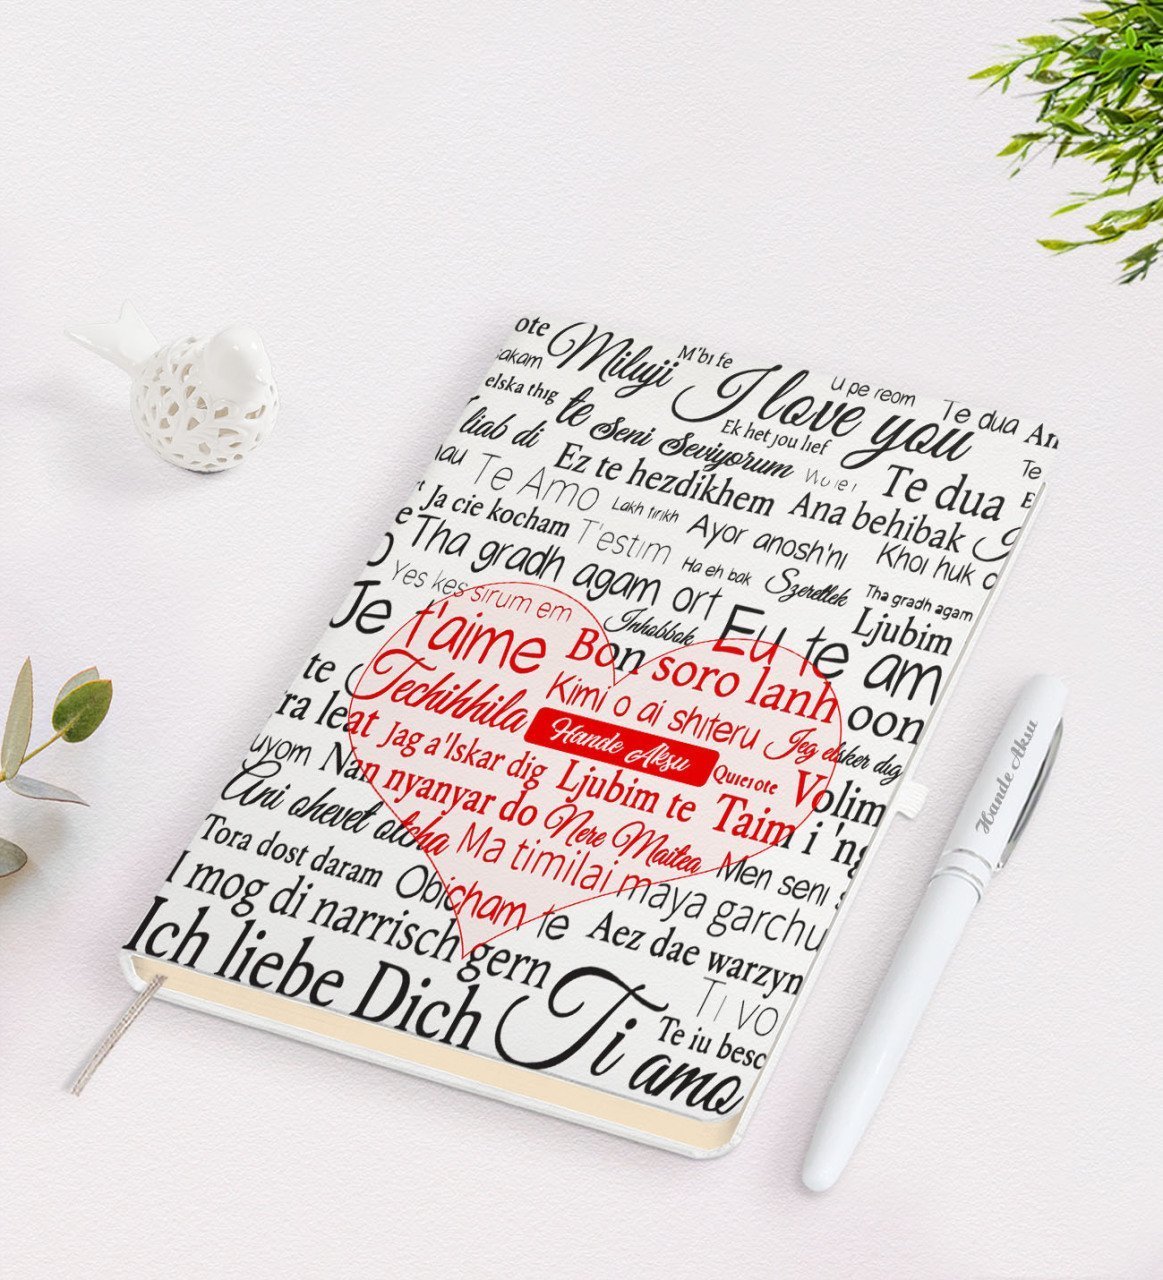 ote Miluji M'bi fe
akam I love you U pe reom Te dua An
elska thig te Seni Seviyorum Ek het jou lief Te
liab di Ez te hezdikhem Te dua
au Te Amo Lakh tirikh Ana behibak
Ja cie kocham T'estim Ayor anosh'ni Khoi huk
Tha gradh agam ort Ha eh bak Szeretlek Tha gradh agam
Yes kes sirum em Inhobbok Eu te am Ljubim
Je t'aime Bon soro lanh oon
te Techihhila Kimi o ai shiteru Jeg elsker dig
ra leat Jag a'lskar dig Hande Aksu Quierote Volim
uyom Nan nyanyar do Ljubim te Taim i 'ng
Ani ohevet otcha Nere Maitea Men seni
Tora dost daram Ma timilai maya garchu
I mog di narrisch gern Obicham te Aez dae warzyn
Ich liebe Dich Ti amo Ti vo
Te iu besc
Hande Aksu